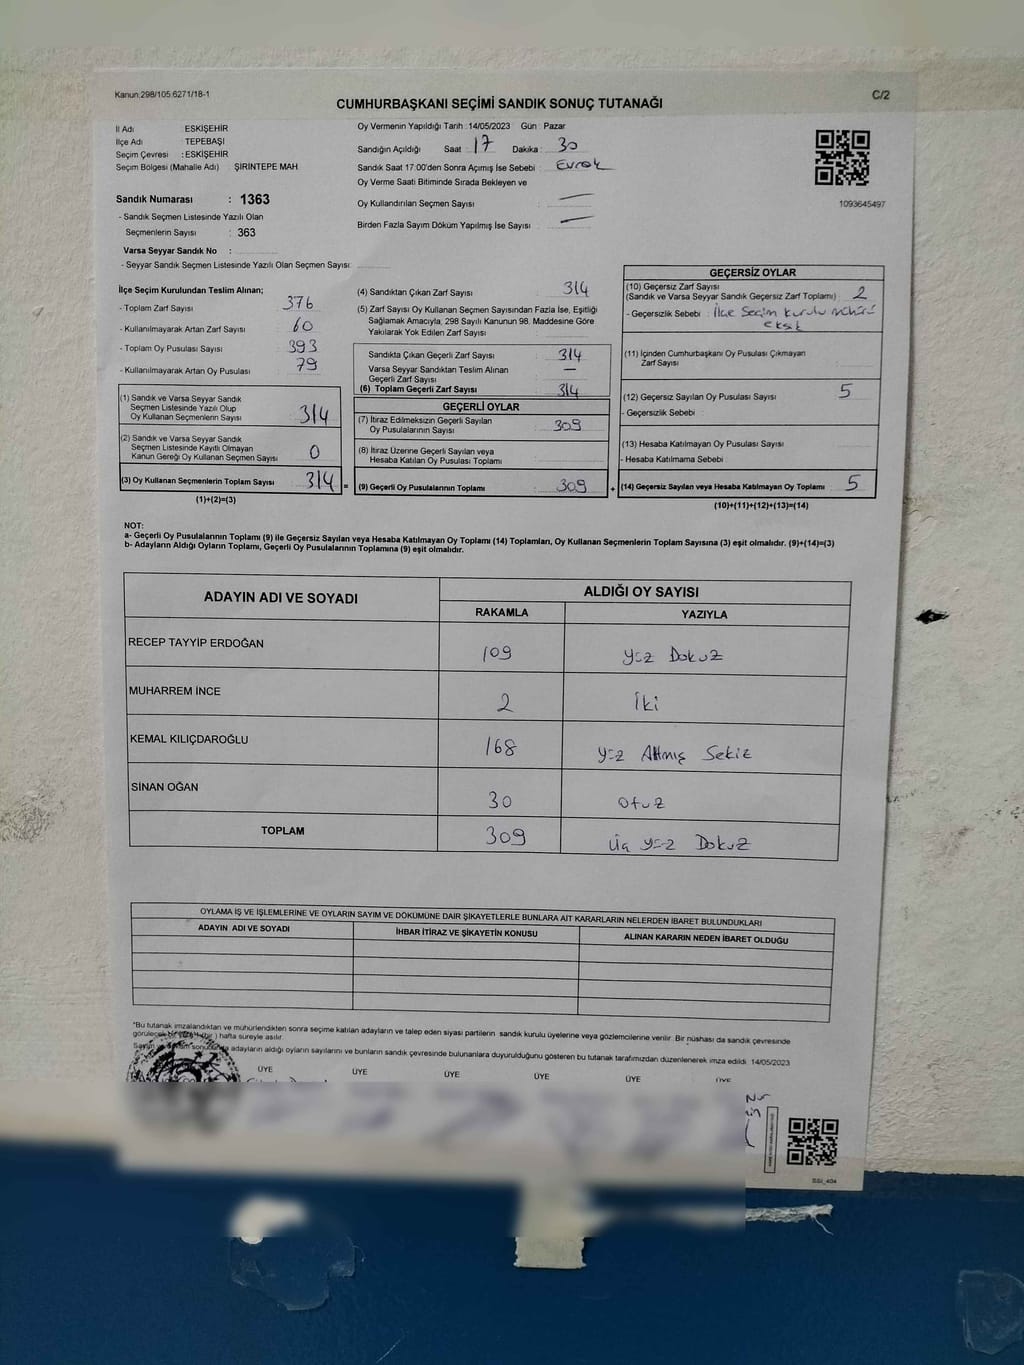 Kanun:298/105:6271/18-1
C/2
CUMHURBAŞKANI SEÇİMİ SANDIK SONUÇ TUTANAĞI
İl Adı : ESKİŞEHİR
İlçe Adı : TEPEBAŞI
Seçim Çevresi : ESKİŞEHİR
Seçim Bölgesi (Mahalle Adı) : ŞİRİNTEPE MAH
Sandık Numarası : 1363
- Sandık Seçmen Listesinde Yazılı Olan
Seçmenlerin Sayısı : 363
Varsa Seyyar Sandık No :
- Seyyar Sandık Seçmen Listesinde Yazılı Olan Seçmen Sayısı:
Oy Vermenin Yapıldığı Tarih : 14/05/2023 Gün : Pazar
Sandığın Açıldığı Saat : 17 Dakika : 30
Sandık Saat 17:00'den Sonra Açılmış İse Sebebi : Evrak
Oy Verme Saati Bitiminde Sırada Bekleyen ve
Oy Kullandırılan Seçmen Sayısı : —
Birden Fazla Sayım Döküm Yapılmış İse Sayısı : —
1093645497
İlçe Seçim Kurulundan Teslim Alınan;
- Toplam Zarf Sayısı : 376
- Kullanılmayarak Artan Zarf Sayısı : 60
- Toplam Oy Pusulası Sayısı : 393
- Kullanılmayarak Artan Oy Pusulası : 79
(1) Sandık ve Varsa Seyyar Sandık
Seçmen Listesinde Yazılı Olup
Oy Kullanan Seçmenlerin Sayısı : 314
(2) Sandık ve Varsa Seyyar Sandık
Seçmen Listesinde Kayıtlı Olmayan
Kanun Gereği Oy Kullanan Seçmen Sayısı : 0
(3) Oy Kullanan Seçmenlerin Toplam Sayısı : 314 =
(1)+(2)=(3)
(4) Sandıktan Çıkan Zarf Sayısı : 314
(5) Zarf Sayısı Oy Kullanan Seçmen Sayısından Fazla İse, Eşitliği
Sağlamak Amacıyla, 298 Sayılı Kanunun 98. Maddesine Göre
Yakılarak Yok Edilen Zarf Sayısı :
Sandıkta Çıkan Geçerli Zarf Sayısı : 314
Varsa Seyyar Sandıktan Teslim Alınan
Geçerli Zarf Sayısı : —
(6) Toplam Geçerli Zarf Sayısı : 314
GEÇERLİ OYLAR
(7) İtiraz Edilmeksizin Geçerli Sayılan
Oy Pusulalarının Sayısı : 309
(8) İtiraz Üzerine Geçerli Sayılan veya
Hesaba Katılan Oy Pusulası Toplamı :
(9) Geçerli Oy Pusulalarının Toplamı : 309 +
GEÇERSİZ OYLAR
(10) Geçersiz Zarf Sayısı
(Sandık ve Varsa Seyyar Sandık Geçersiz Zarf Toplamı) : 2
- Geçersizlik Sebebi : İlçe Seçim kurulu mührü
eksik
(11) İçinden Cumhurbaşkanı Oy Pusulası Çıkmayan
Zarf Sayısı :
(12) Geçersiz Sayılan Oy Pusulası Sayısı : 5
- Geçersizlik Sebebi :
(13) Hesaba Katılmayan Oy Pusulası Sayısı :
- Hesaba Katılmama Sebebi :
(14) Geçersiz Sayılan veya Hesaba Katılmayan Oy Toplamı : 5
(10)+(11)+(12)+(13)=(14)
NOT:
a- Geçerli Oy Pusulalarının Toplamı (9) ile Geçersiz Sayılan veya Hesaba Katılmayan Oy Toplamı (14) Toplamları, Oy Kullanan Seçmenlerin Toplam Sayısına (3) eşit olmalıdır. (9)+(14)=(3)
b- Adayların Aldığı Oyların Toplamı, Geçerli Oy Pusulalarının Toplamına (9) eşit olmalıdır.
ADAYIN ADI VE SOYADI ALDIĞI OY SAYISI
RAKAMLA YAZIYLA
RECEP TAYYİP ERDOĞAN 109 yüz Dokuz
MUHARREM İNCE 2 İki
KEMAL KILIÇDAROĞLU 168 yüz Altmış Sekiz
SİNAN OĞAN 30 Otuz
TOPLAM 309 Üç yüz Dokuz
OYLAMA İŞ VE İŞLEMLERİNE VE OYLARIN SAYIM VE DÖKÜMÜNE DAİR ŞİKAYETLERLE BUNLARA AİT KARARLARIN NELERDEN İBARET BULUNDUKLARI
ADAYIN ADI VE SOYADI İHBAR İTİRAZ VE ŞİKAYETİN KONUSU ALINAN KARARIN NEDEN İBARET OLDUĞU
*Bu tutanak imzalandıktan ve mühürlendikten sonra seçime katılan adayların ve talep eden siyasi partilerin sandık kurulu üyelerine veya gözlemcilerine verilir. Bir nüshası da sandık çevresinde
(bir ) hafta süreyle asılır.
adayların aldığı oyların sayılarını ve bunların sandık çevresinde bulunanlara duyurulduğunu gösteren bu tutanak tarafımızdan düzenlenerek imza edildi. 14/05/2023
ÜYE ÜYE ÜYE ÜYE ÜYE ÜYE
SSI_404